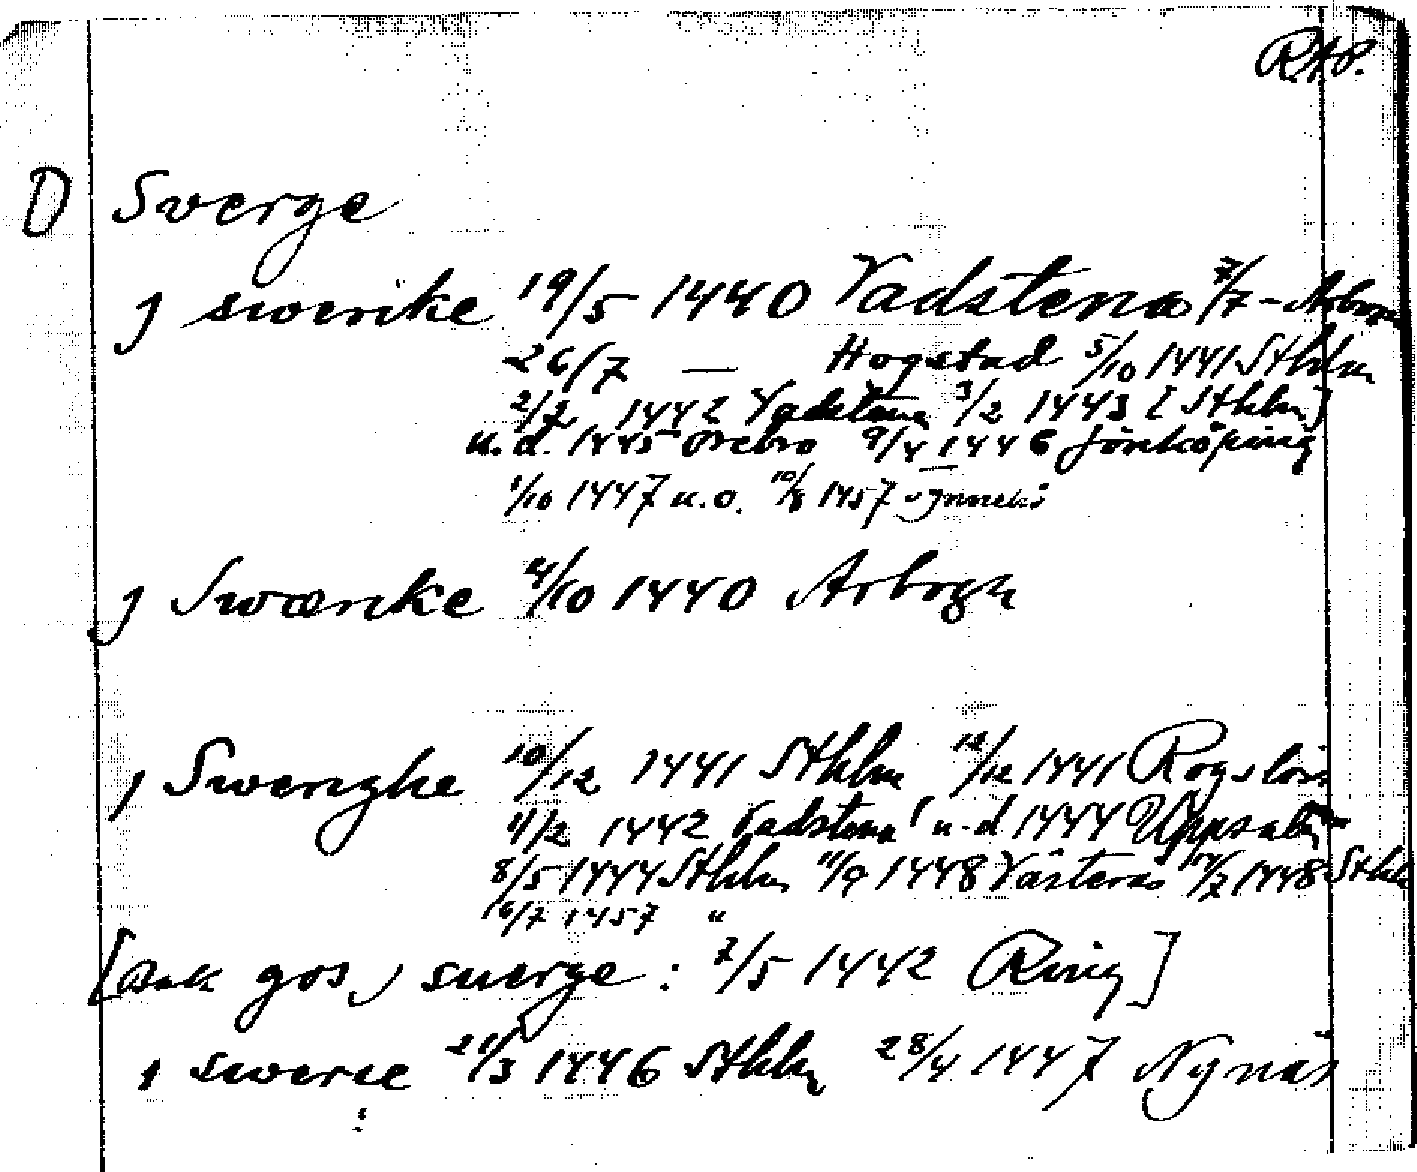 RAP.
D Sverge
j swerike 19/5 1440 Vadstena 7/7 - Arboga
26/7 — Hogstad 5/10 1441 Sthlm
2/2 1442 Vadstena 3/2 1443 [Sthlm]
u.d. 1445 Örebro 9/4 1446 Jönköping
1/10 1447 u.o. 10/8 1457
j Swærike 4/10 1440 Arbogh
j Swerighe 10/12 1441 Sthlm 12/12 1441 Rogslösa
11/2 1442 Vadstena u.d 1444 Uppsala
8/5 1444 Sthlm 11/9 1448 Västerås 14/7 1448 Sthlm
16/7 1457 "
[Bak gos j suerge : 7/5 1442 Ring]
j swerie 21/3 1446 Sthlm 28/4 1447 Nynäs